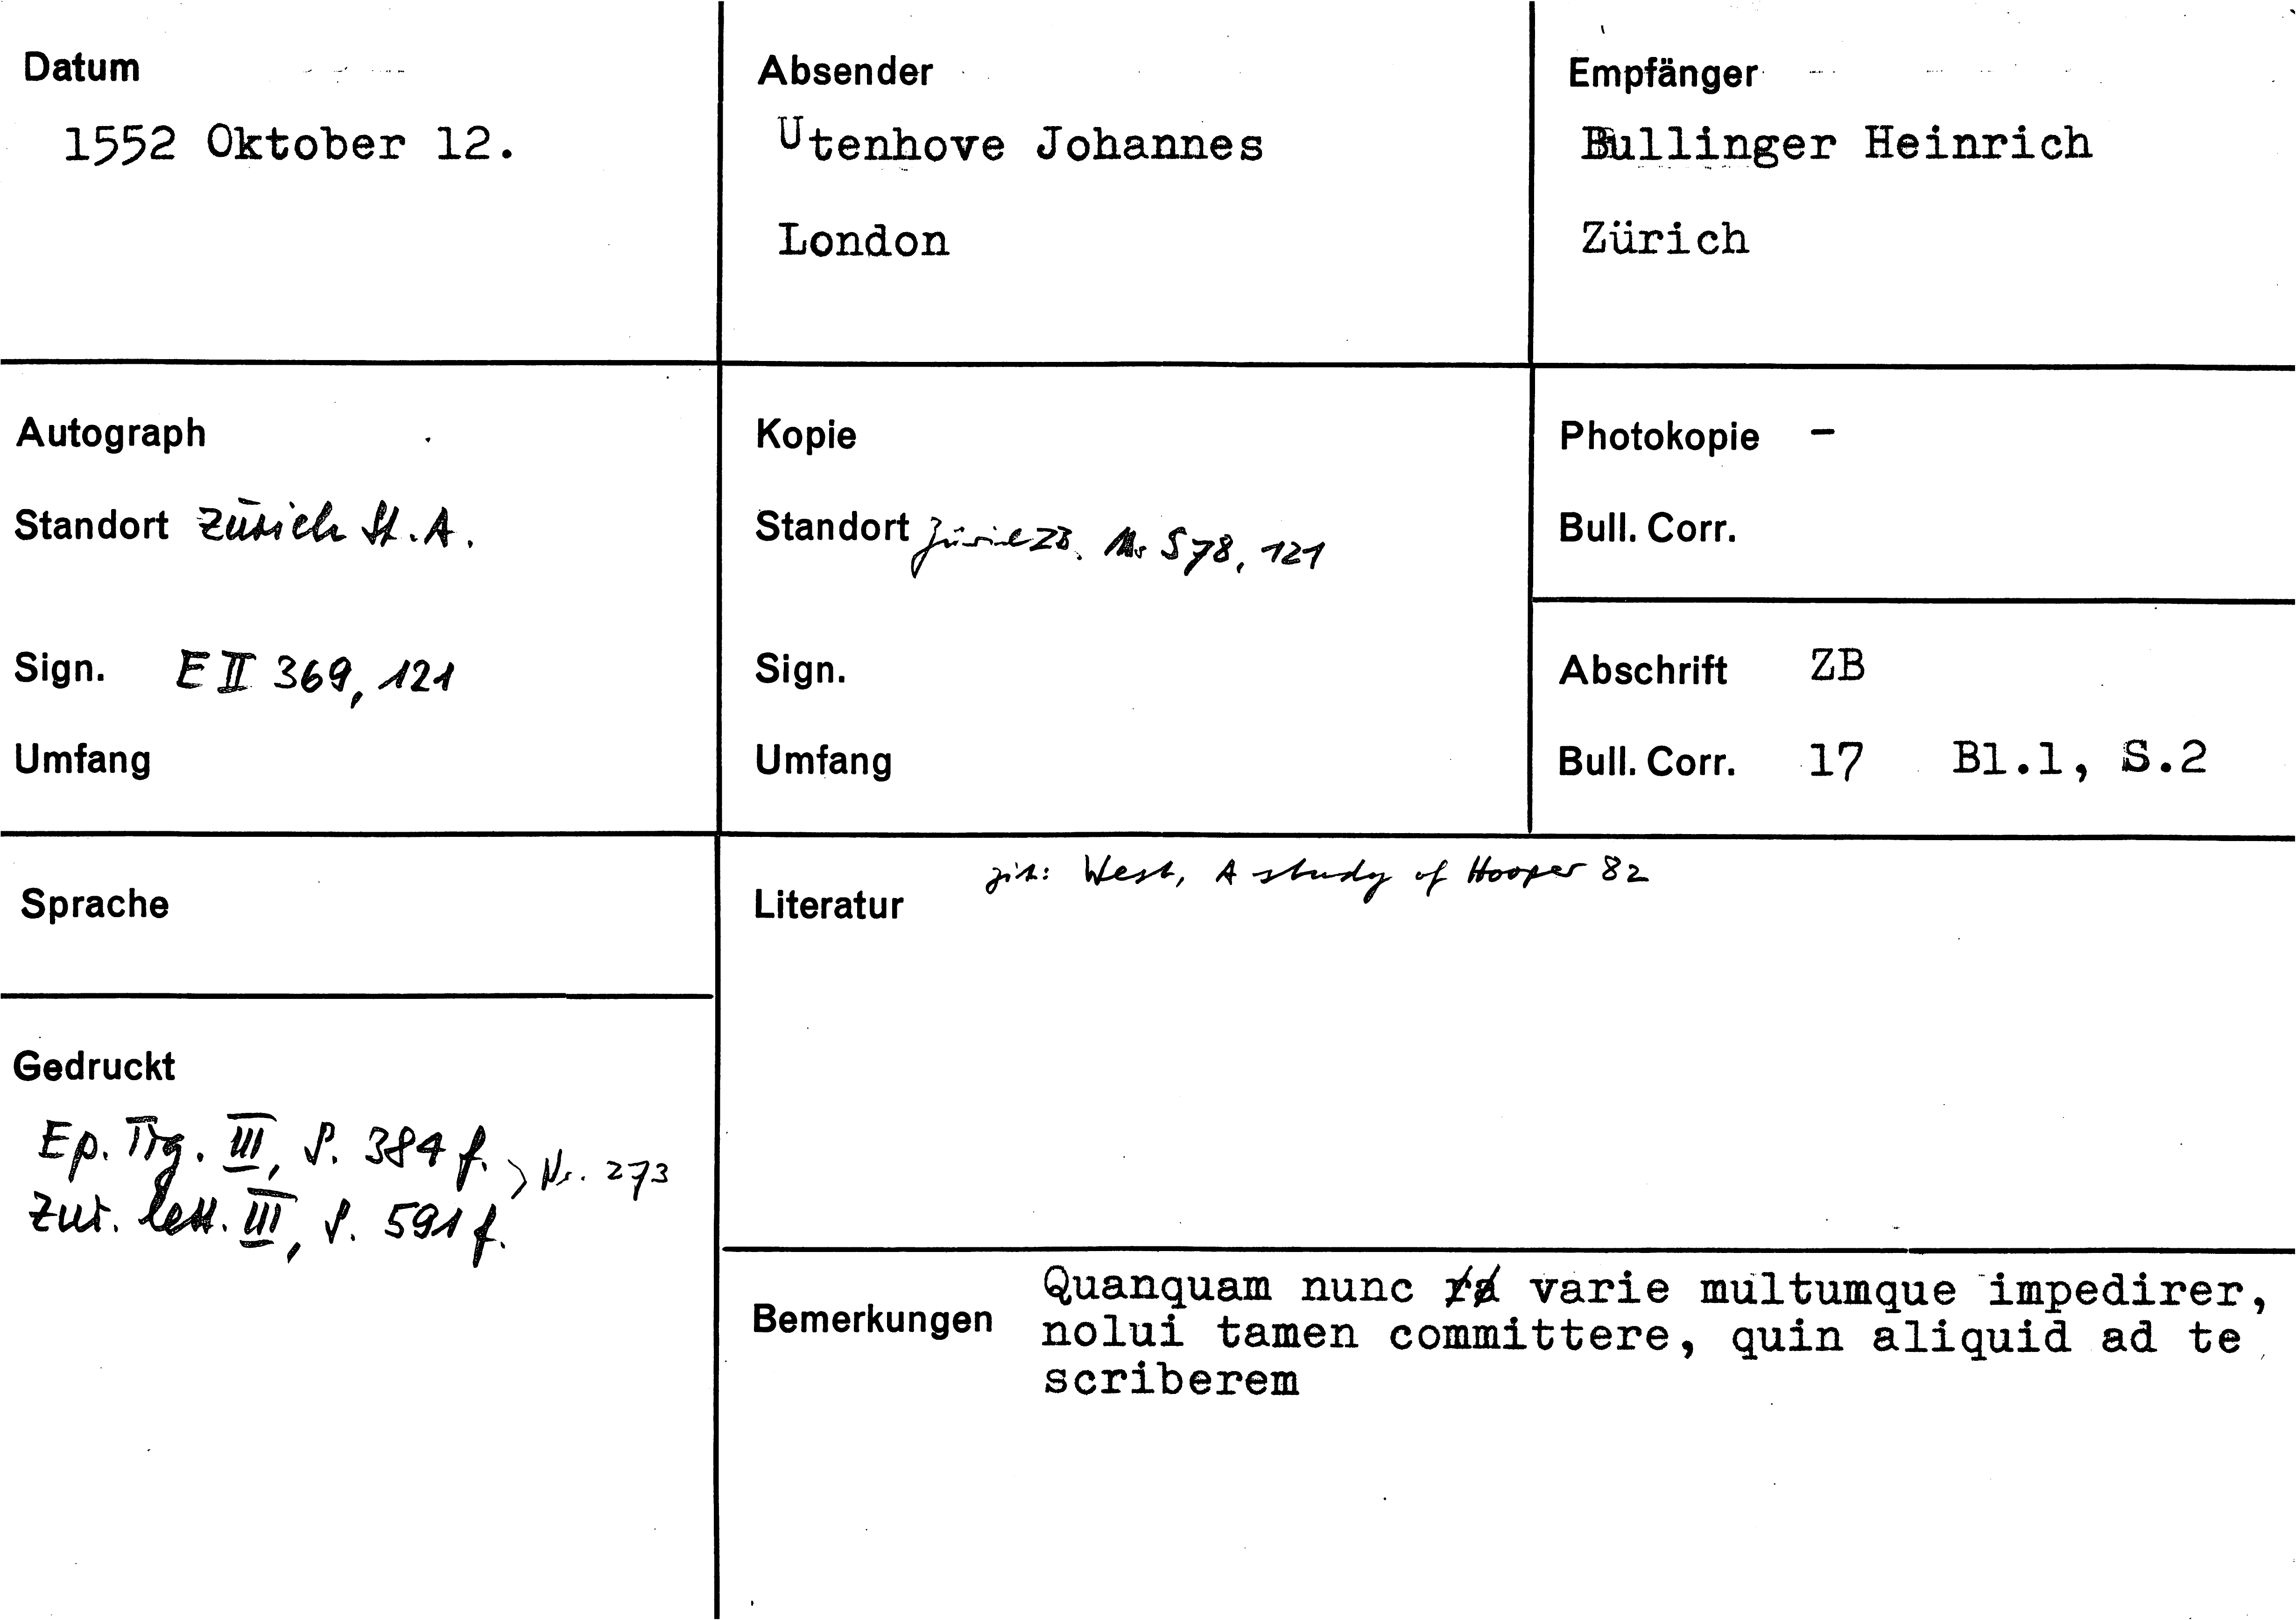 Datum
1552 Oktober 12.
Absender
Utenhove Johannes
London
Empfänger
Bullinger Heinrich
Zürich
Autograph
Standort Zürich St. A.
Sign. E II 369, 121
Umfang
Kopie
Standort Zürich ZB. Ms S 78, 121
Sign.
Umfang
Photokopie -
Bull. Corr.
Abschrift ZB
Bull. Corr. 17 Bl.1, S.2
Sprache
Gedruckt
Ep. Tig. III, S. 384 f. > Nr. 273
Zur. lett. III, S. 591 f.
Literatur zit: West, A study of Hooper 82
Bemerkungen
Quanquam nunc varie multumque impedirer,
nolui tamen committere, quin aliquid ad te
scriberem